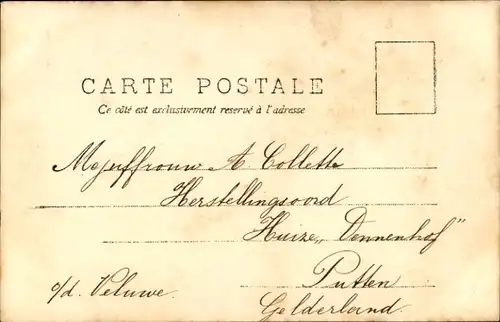 CARTE POSTALE
Ce côté est exclusivement reservé à l'adresse
Mejuffrouw A. Collette
Herstellingsoord
Huize „Dennenhof"
Putten
o/d. Veluwe.
Gelderland.